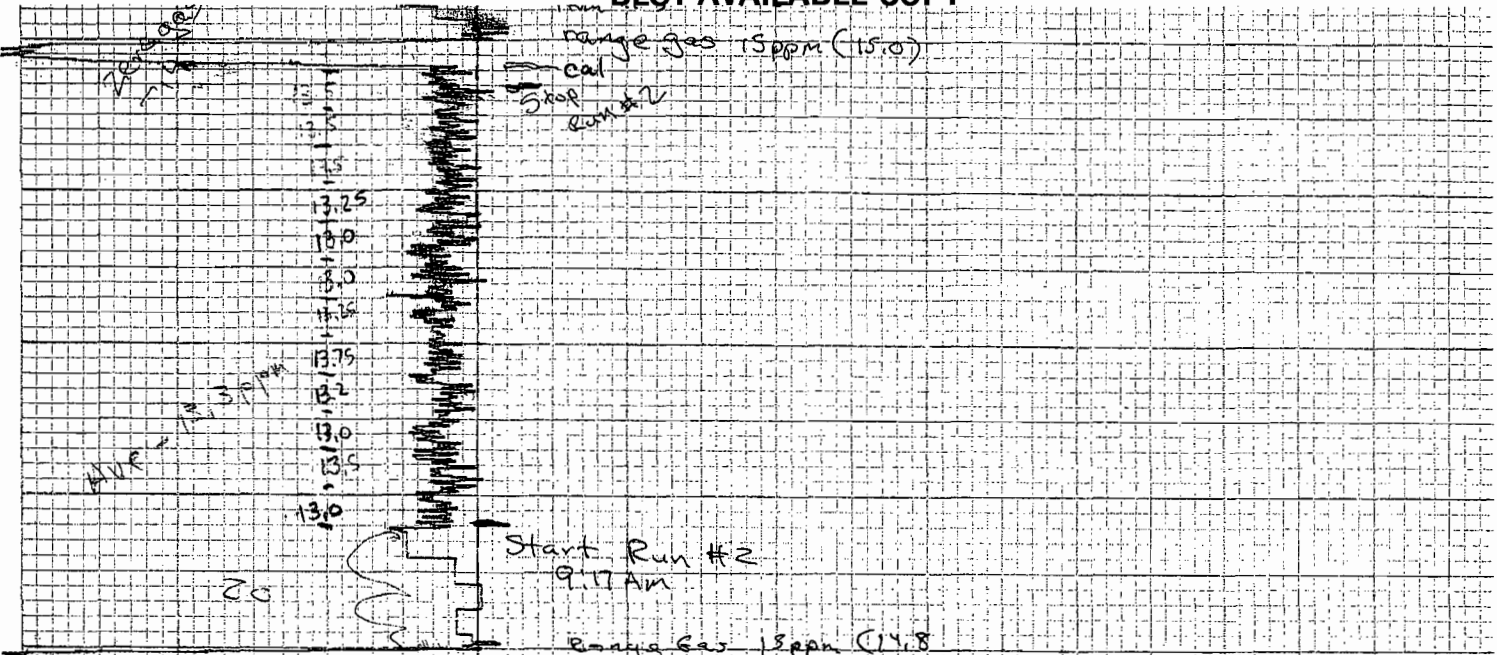 BEST AVAILABLE COPY
range gas 15ppm (15.0)
cal
Stop
Run #2
13.25
13.0
13.0
13.25
13.75
13.2
13.0
13.5
13.0
AVE - 13.3ppm
Start Run #2
9:17 Am
20
Range Gas 15ppm (14.8